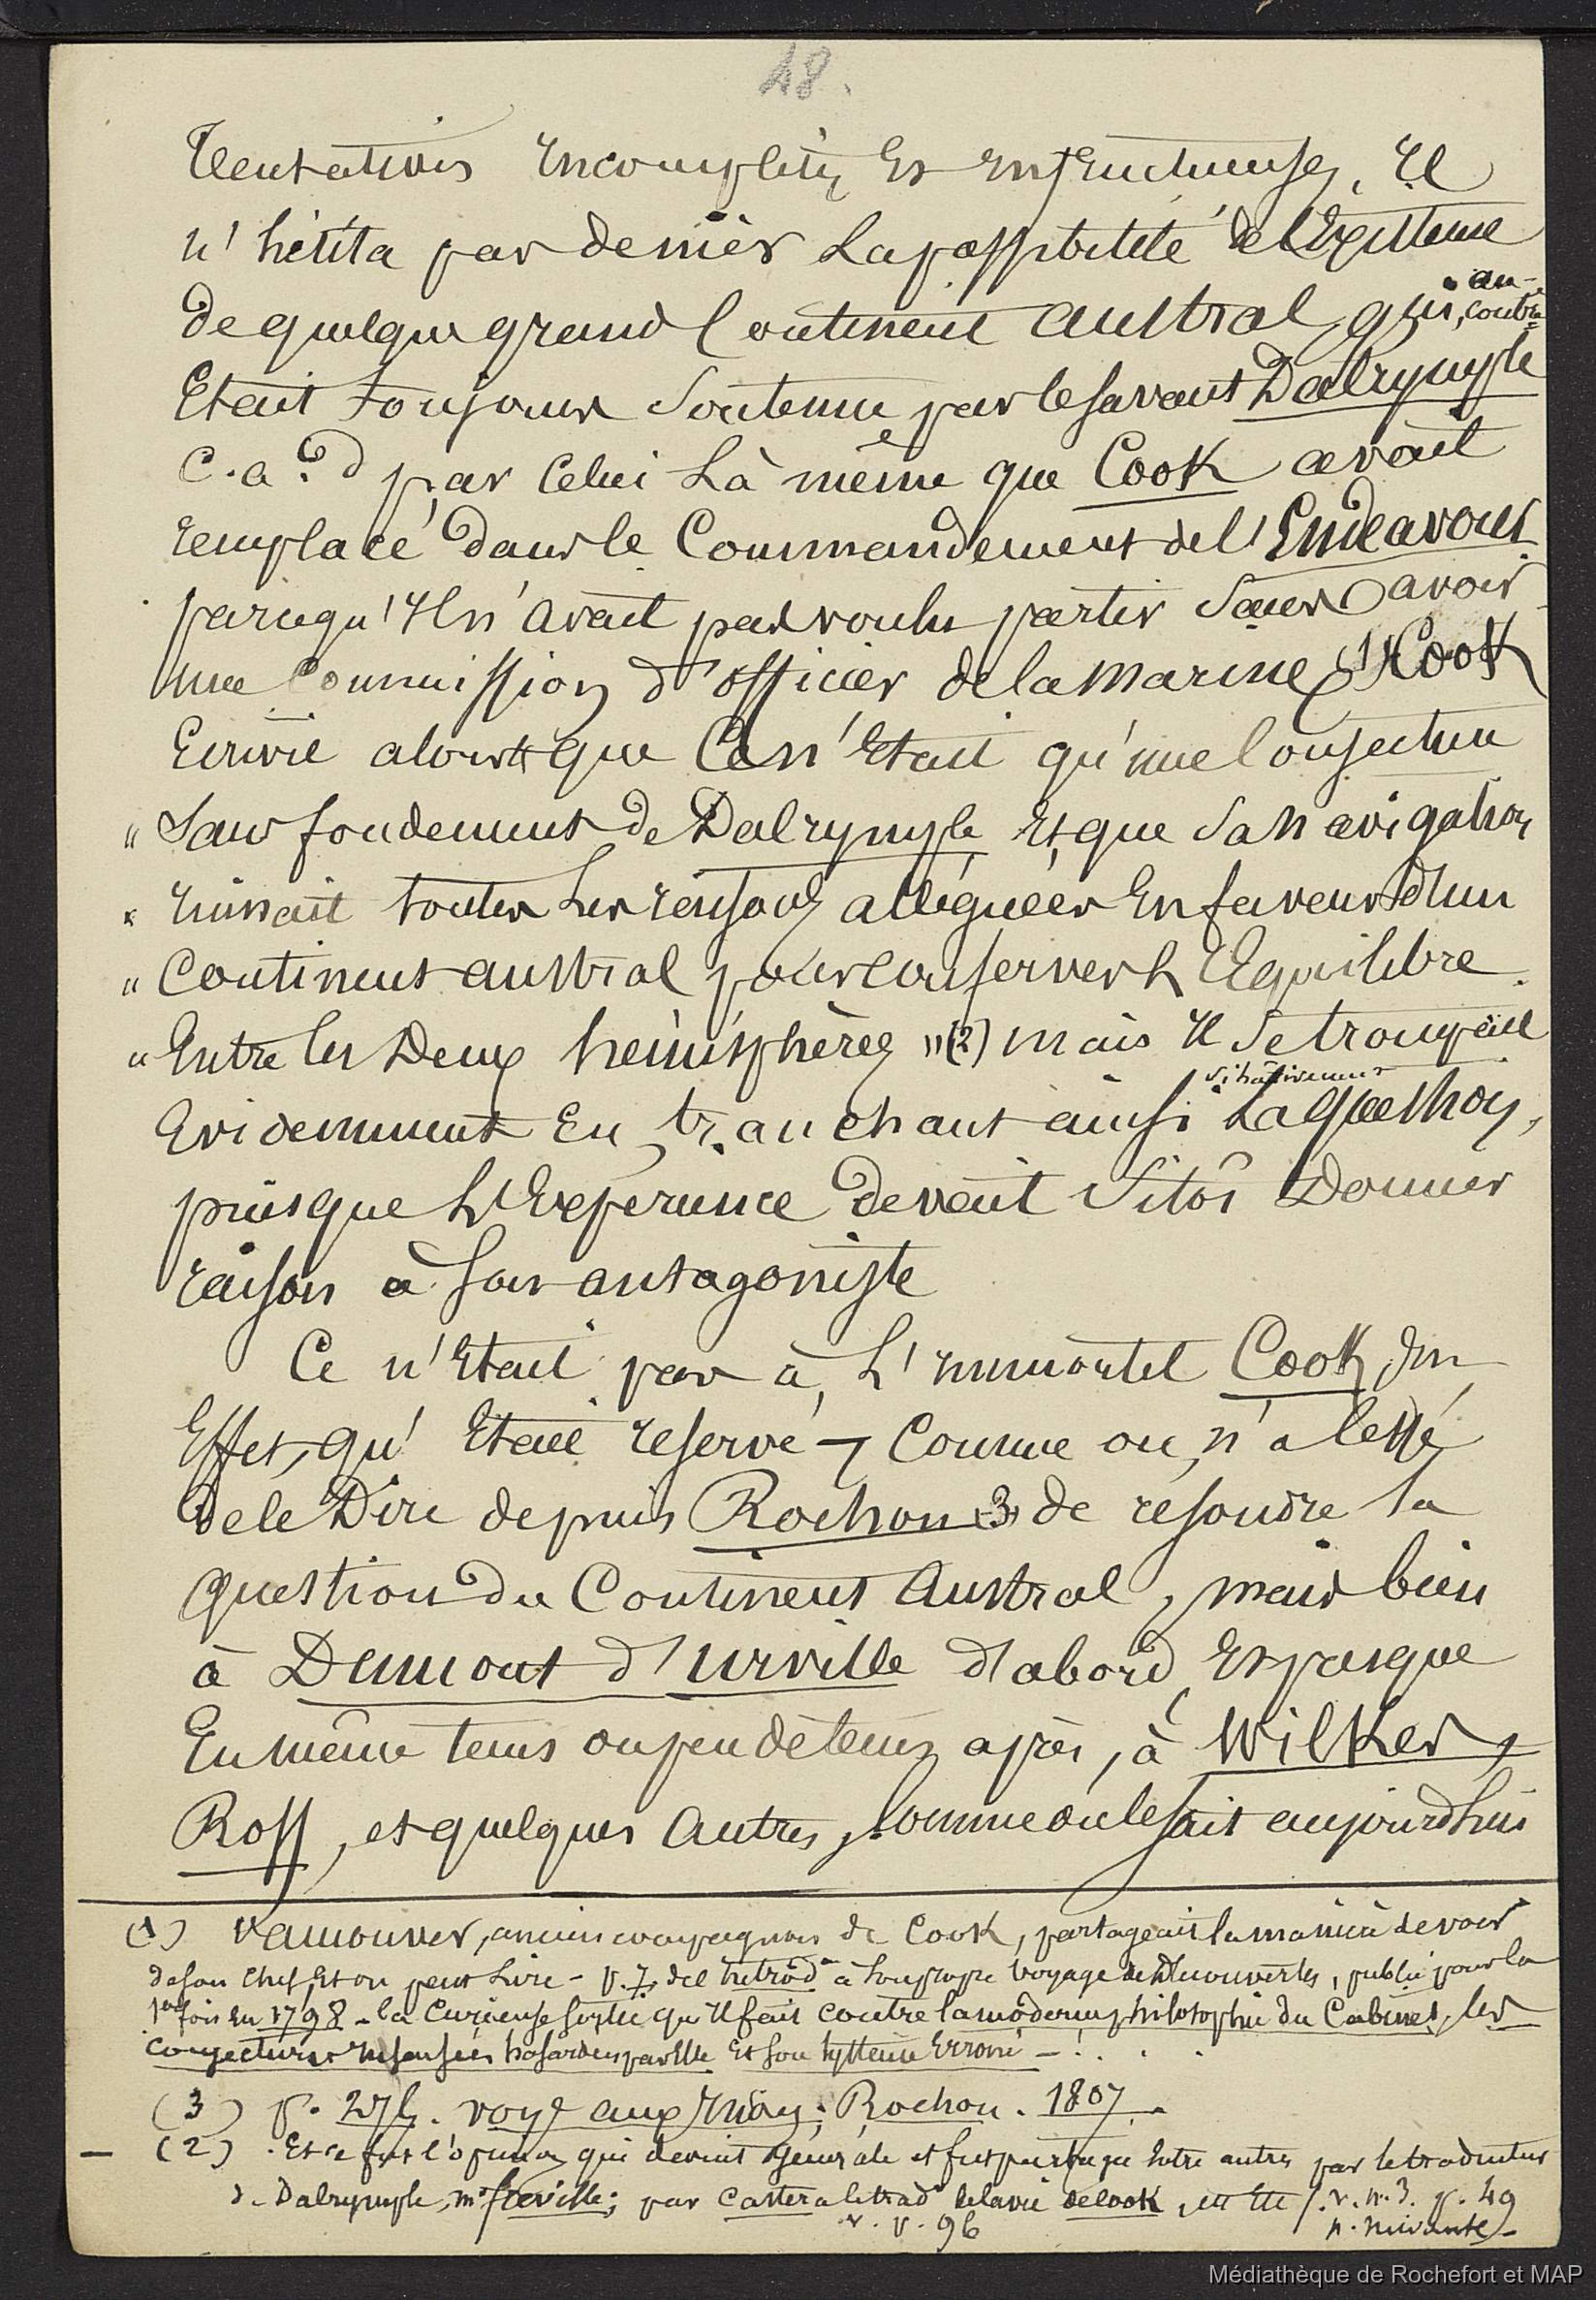 48.
Tentatives incomplètes et infructueuses, Il
n'hésita pas de nier la possibilité de l'Existence
de quelque grand Continent austral, qui, au-contre
Etait toujours Soutenue par le savant Dalrymple
C. a. d par Celui là même que Cook avait
remplacé dans le Commandement de l'Endeavour
parcequ'Il n'avait pas voulu partir Sans avoir
une Commission d'officier de la marine (1) Cook
Ecrivit alors que Ce n'Etait qu'une Conjecture
" Sans fondement de Dalrymple et que Sa navigation
" ruinait toutes les raisons alléguées En faveur d'un
" Continent austral pour conserver L'Equilibre
" Entre les Deux hémisphères " (2) mais Il Se trompait
Evidemment En tranchant ainsi si hâtivement La question,
puisque L'Experience devait Sitôt Donner
raison à Son antagoniste
Ce n'Etait pas à L'immortel Cook, En
Effet, qu'Etait reservé – Comme on n'a cessé
de le Dire depuis Rochon (3) de résoudre la
question du Continent Austral, mais bien
à Dumont d'Urville d'abord, Et presque
En même tems ou peu de tems après, à Wilkes,
Ross, et quelques Autres, Comme on le sait aujourd'hui
(1) Vancouver, ancien compagnon de Cook, partageait la manière de voir
de son chef, Et on peut Lire – p. 7, de l'Introd.on à Son propre Voyage de Découvertes, publié pour la
1ere fois En 1798 – la Curieuse Sortie qu'Il fait contre la moderne philosophie du Cabinet, les
Conjectures insensées hasardées par Elle Et son Système Erroné – . . . .
(3) p. voy.e aux Indes. Rochon. 1807.
– (2) . Et ce fut l'opinion qui devint générale et fut partagée Entre autres par le traducteur
de Dalrymple, mr freville; par Castera le trad.r de la vie de Cook, etc Etc /. v. n. 3. p. 49
v. p. 96 p. suivante –
Médiathèque de Rochefort et MAP